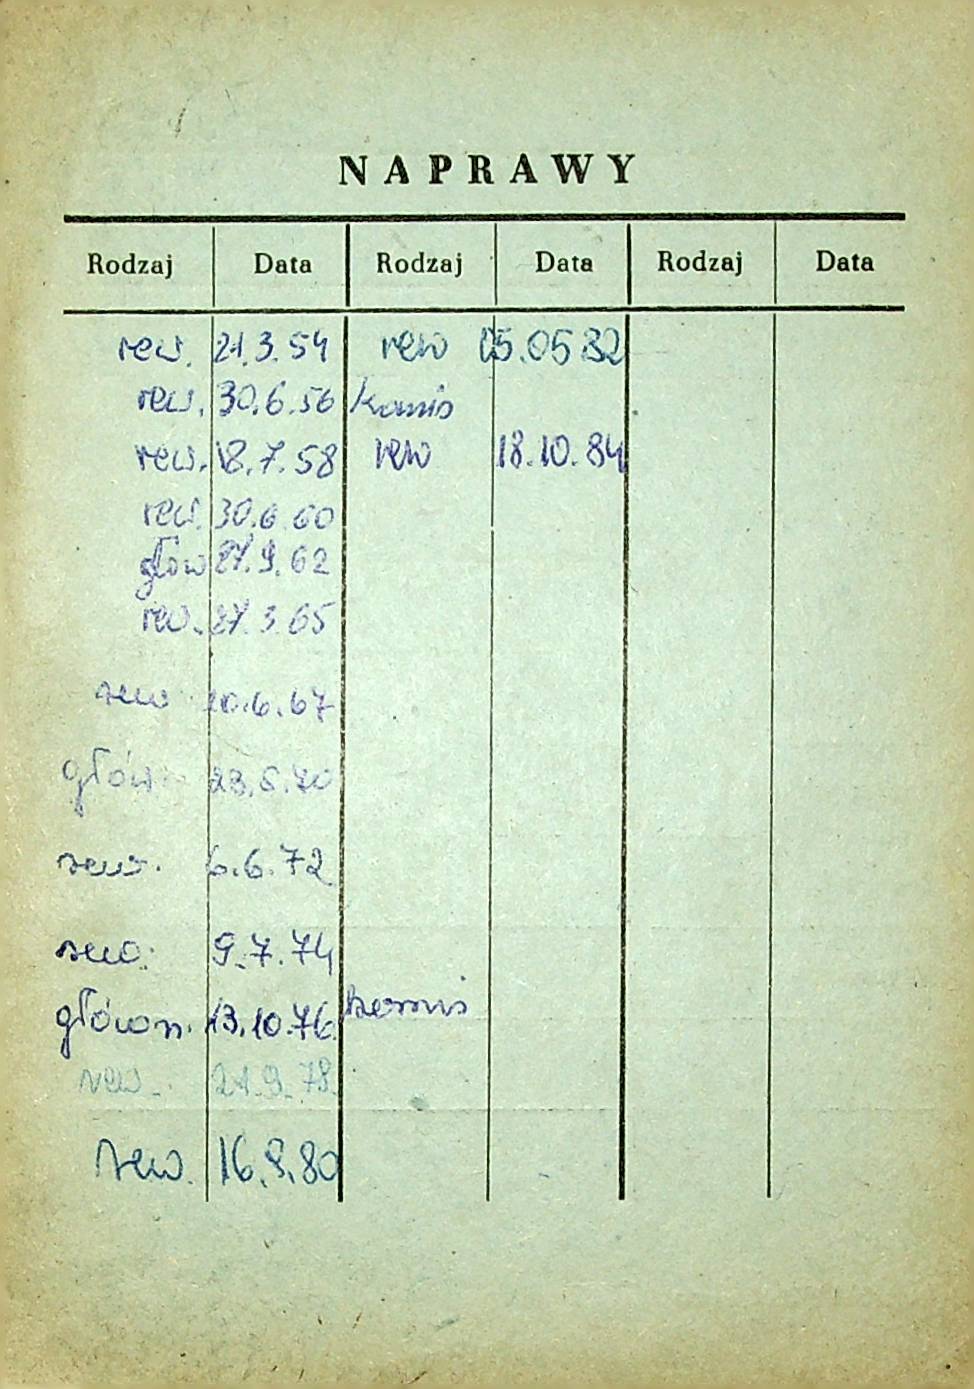 NAPRAWY
Rodzaj Data Rodzaj Data Rodzaj Data
rew. 21.3.54 rew 05.05 82
rew. 30.6.56 komis
rew. 18.7.58 rew 18.10.84
rew. 30.6 60
głów 27.9.62
rew. 27.3.65
rew 10.6.67
głów 23.5.70
rew. 6.6.72
rew. 9.7.74
główn. 13.10.76 komis
rew. 21.9.78.
rew. 16.9.80